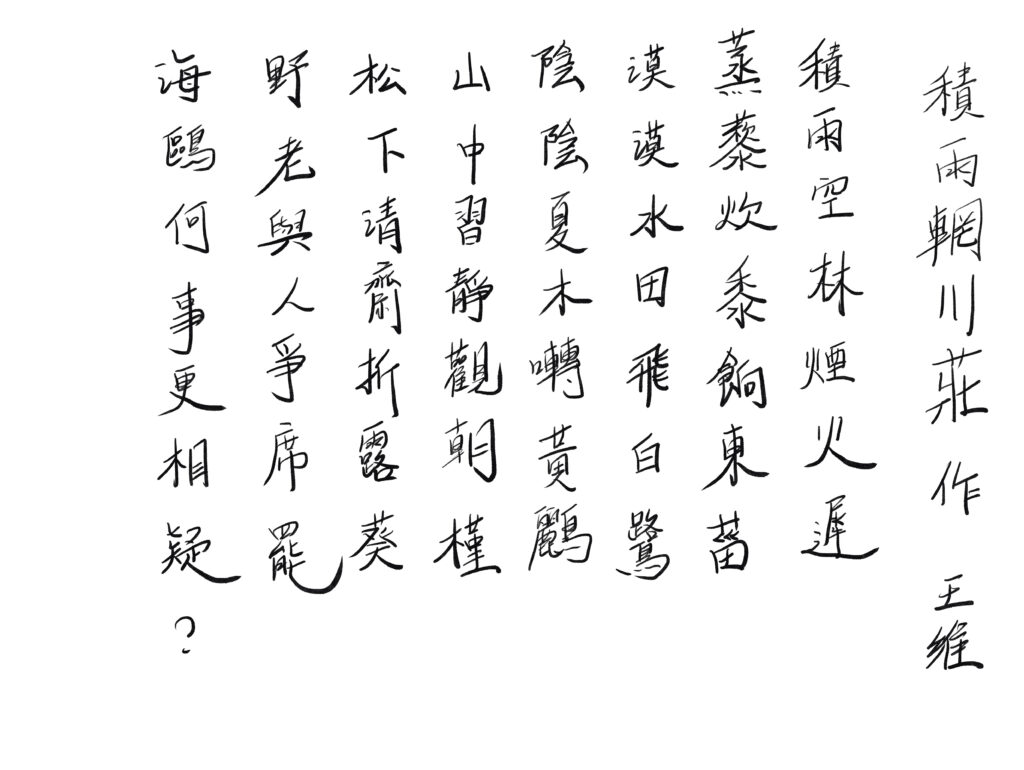 積雨輞川莊作 王維
積雨空林煙火遲
蒸藜炊黍餉東菑
漠漠水田飛白鷺
陰陰夏木囀黃鸝
山中習靜觀朝槿
松下清齋折露葵
野老與人爭席罷
海鷗何事更相疑？